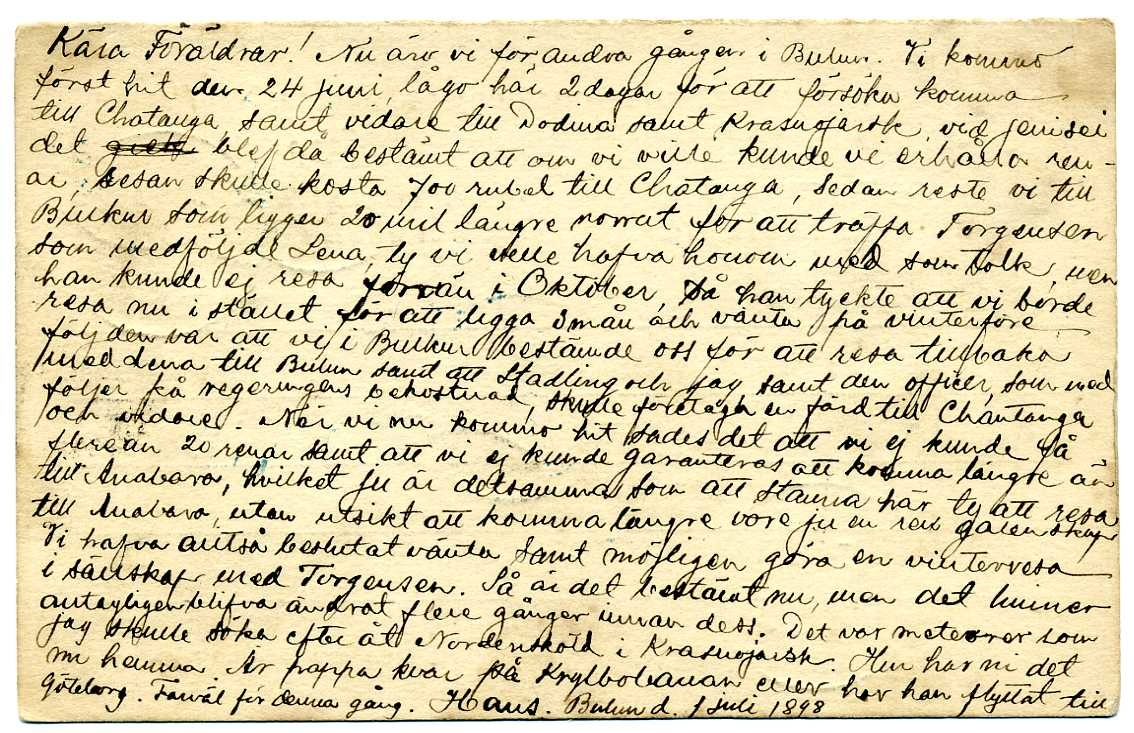 Kära Föräldrar! Nu äro vi för andra gången i Bulun. Vi kommo
först hit den 24 juni, lågo här 2 dagar för att försöka komma
till Chatanga, samt vidare till Dodina samt Krasnojarsk, vid Jenisei
det blef då bestämt att om vi ville kunde vi erhålla ren-
ar, resan skulle kosta 700 rubel till Chatanga, Sedan reste vi till
Bulkur som ligger 20 mil längre norrut för att träffa Torgensen
som medföljde Lena, ty vi ville hafva honom med som tolk, men
han kunde ej resa förrän i Oktober, då han tyckte att vi borde
resa nu i stället för att ligga 3 mån och vänta på vinterföre
följden var att vi i Bulkur bestämde oss för att resa tillbaka
med Lena till Bulun samt att Stadling och jag samt den officer, som med
följer på regeringens bekostnad, skulle företaga en färd till Chantanga
och vidare. När vi nu kommo hit sades det att vi ej kunde få
flere än 20 renar samt att vi ej kunde garanteras att komma längre än
till Anabara, hvilket ju är detsamma som att stanna här ty att resa
till Anabara, utan utsikt att komma längre vore ju en ren galenskap
Vi hafva alltså beslutat vänta samt möjligen göra en vinterresa
i sällskap med Torgensen. Så är det bestämt nu, men det hinner
antagligen blifva ändrat flere gånger innan dess. Det var meteorer som
jag skulle söka efter åt Nordensköld i Krasnojarsk. Hur har ni det
nu hemma. Är pappa kvar på Krylbobanan eller har han flyttat till
Göteborg. Farväl för denna gång. Hans. Bulun d. 1 juli 1898